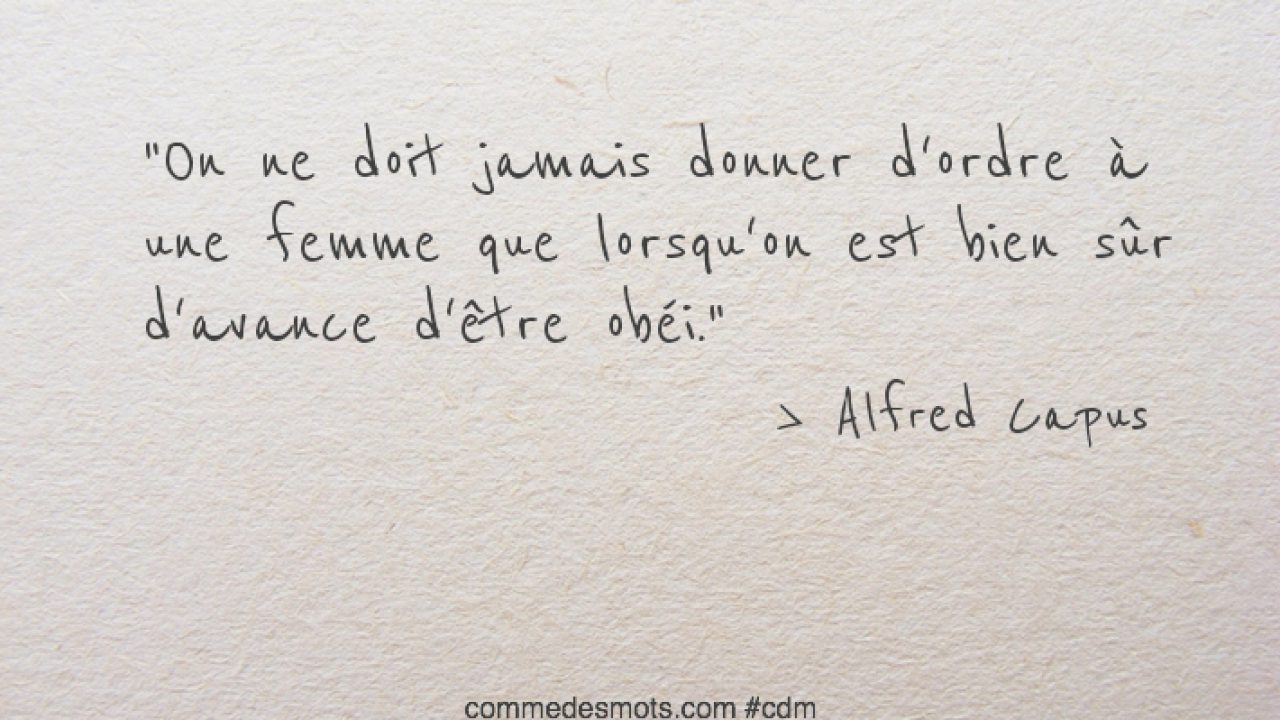 "On ne doit jamais donner d'ordre à
une femme que lorsqu'on est bien sûr
d'avance d'être obéi."
> Alfred Capus
commedesmots.com #cdm